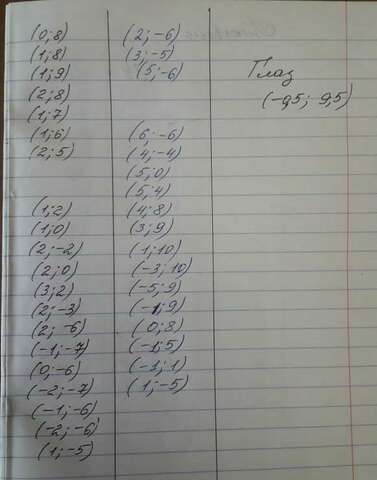 (0;8)
(1;8)
(1;9)
(2;8)
(1;7)
(1;6)
(2;5)
(1;2)
(1;0)
(2;-2)
(2;0)
(3;2)
(2;-3)
(2;-6)
(-1;-7)
(0;-6)
(-2;-7)
(-1;-6)
(-2;-6)
(1;-5)
(2;-6)
(3;-5)
(5;-6)
(6;-6)
(4;-4)
(5;0)
(5;4)
(4;8)
(3;9)
(1;10)
(-3;10)
(-5;9)
(-1;9)
(0;8)
(-1;5)
(-1;1)
(1;-5)
Глаз
(-0,5; 9,5)